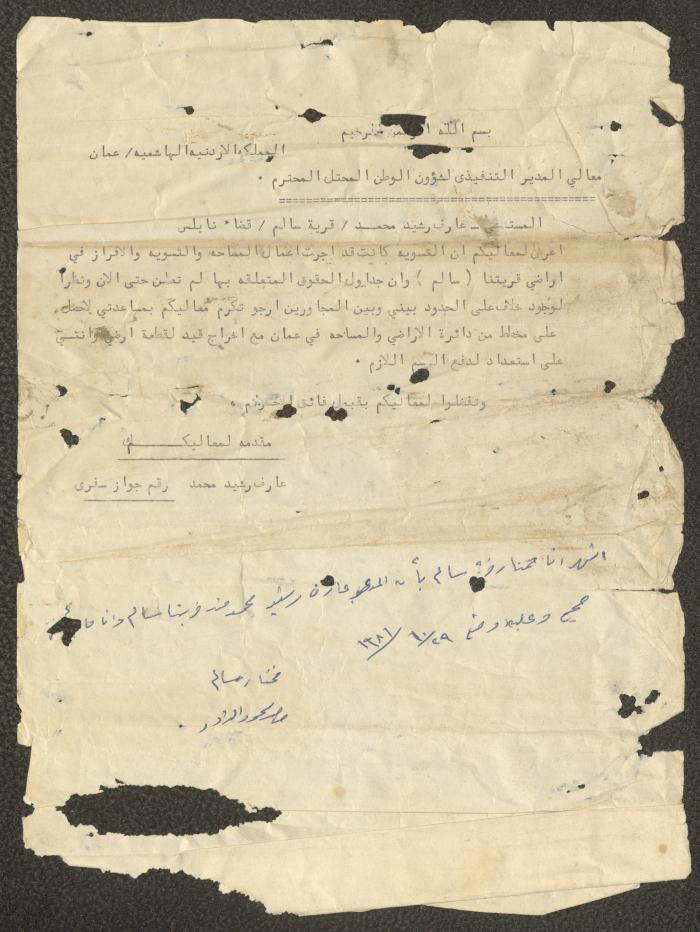 بسم الله الرحمن الرحيم
المملكه الاردنيه الهاشميه/ عمان
معالي المدير التنفيذى لشؤون الوطن المحتل المحترم .
المستدعي ـ عارف رشيد محمـــد / قرية سالم / قضاء نابلس
اعرض لمعاليكم ان التسويه كانت قد اجرت اعمال المساحه والتسويه والافراز في
اراضي قريتنا ( سالم ) وان جداول الحقوق المتعلقه بها لم تعلن حتى الان ونظرا
لوجود خلاف على الحدود بيني وبين المجاورين ارجو تكرم معاليكم بمساعدتي لاحصل
على مخطط من دائرة الاراضي والمساحه في عمان مع اخراج قيد لقطعة ارضي وانني
على استعداد لدفع الرسم اللازم .
وتفضلوا لمعاليكم بقبول فائق الاحترام .
مقدمه لمعاليكـــــــم
عارف رشيد محمد رقم جواز سفرى
اشهد انا مختار قرية سالم بأن المدعو عارف رشيد محمد من قريتنا سالم وانا
صحيح وعليه اوقع ٢٩/ ١٠/
مختار سالم